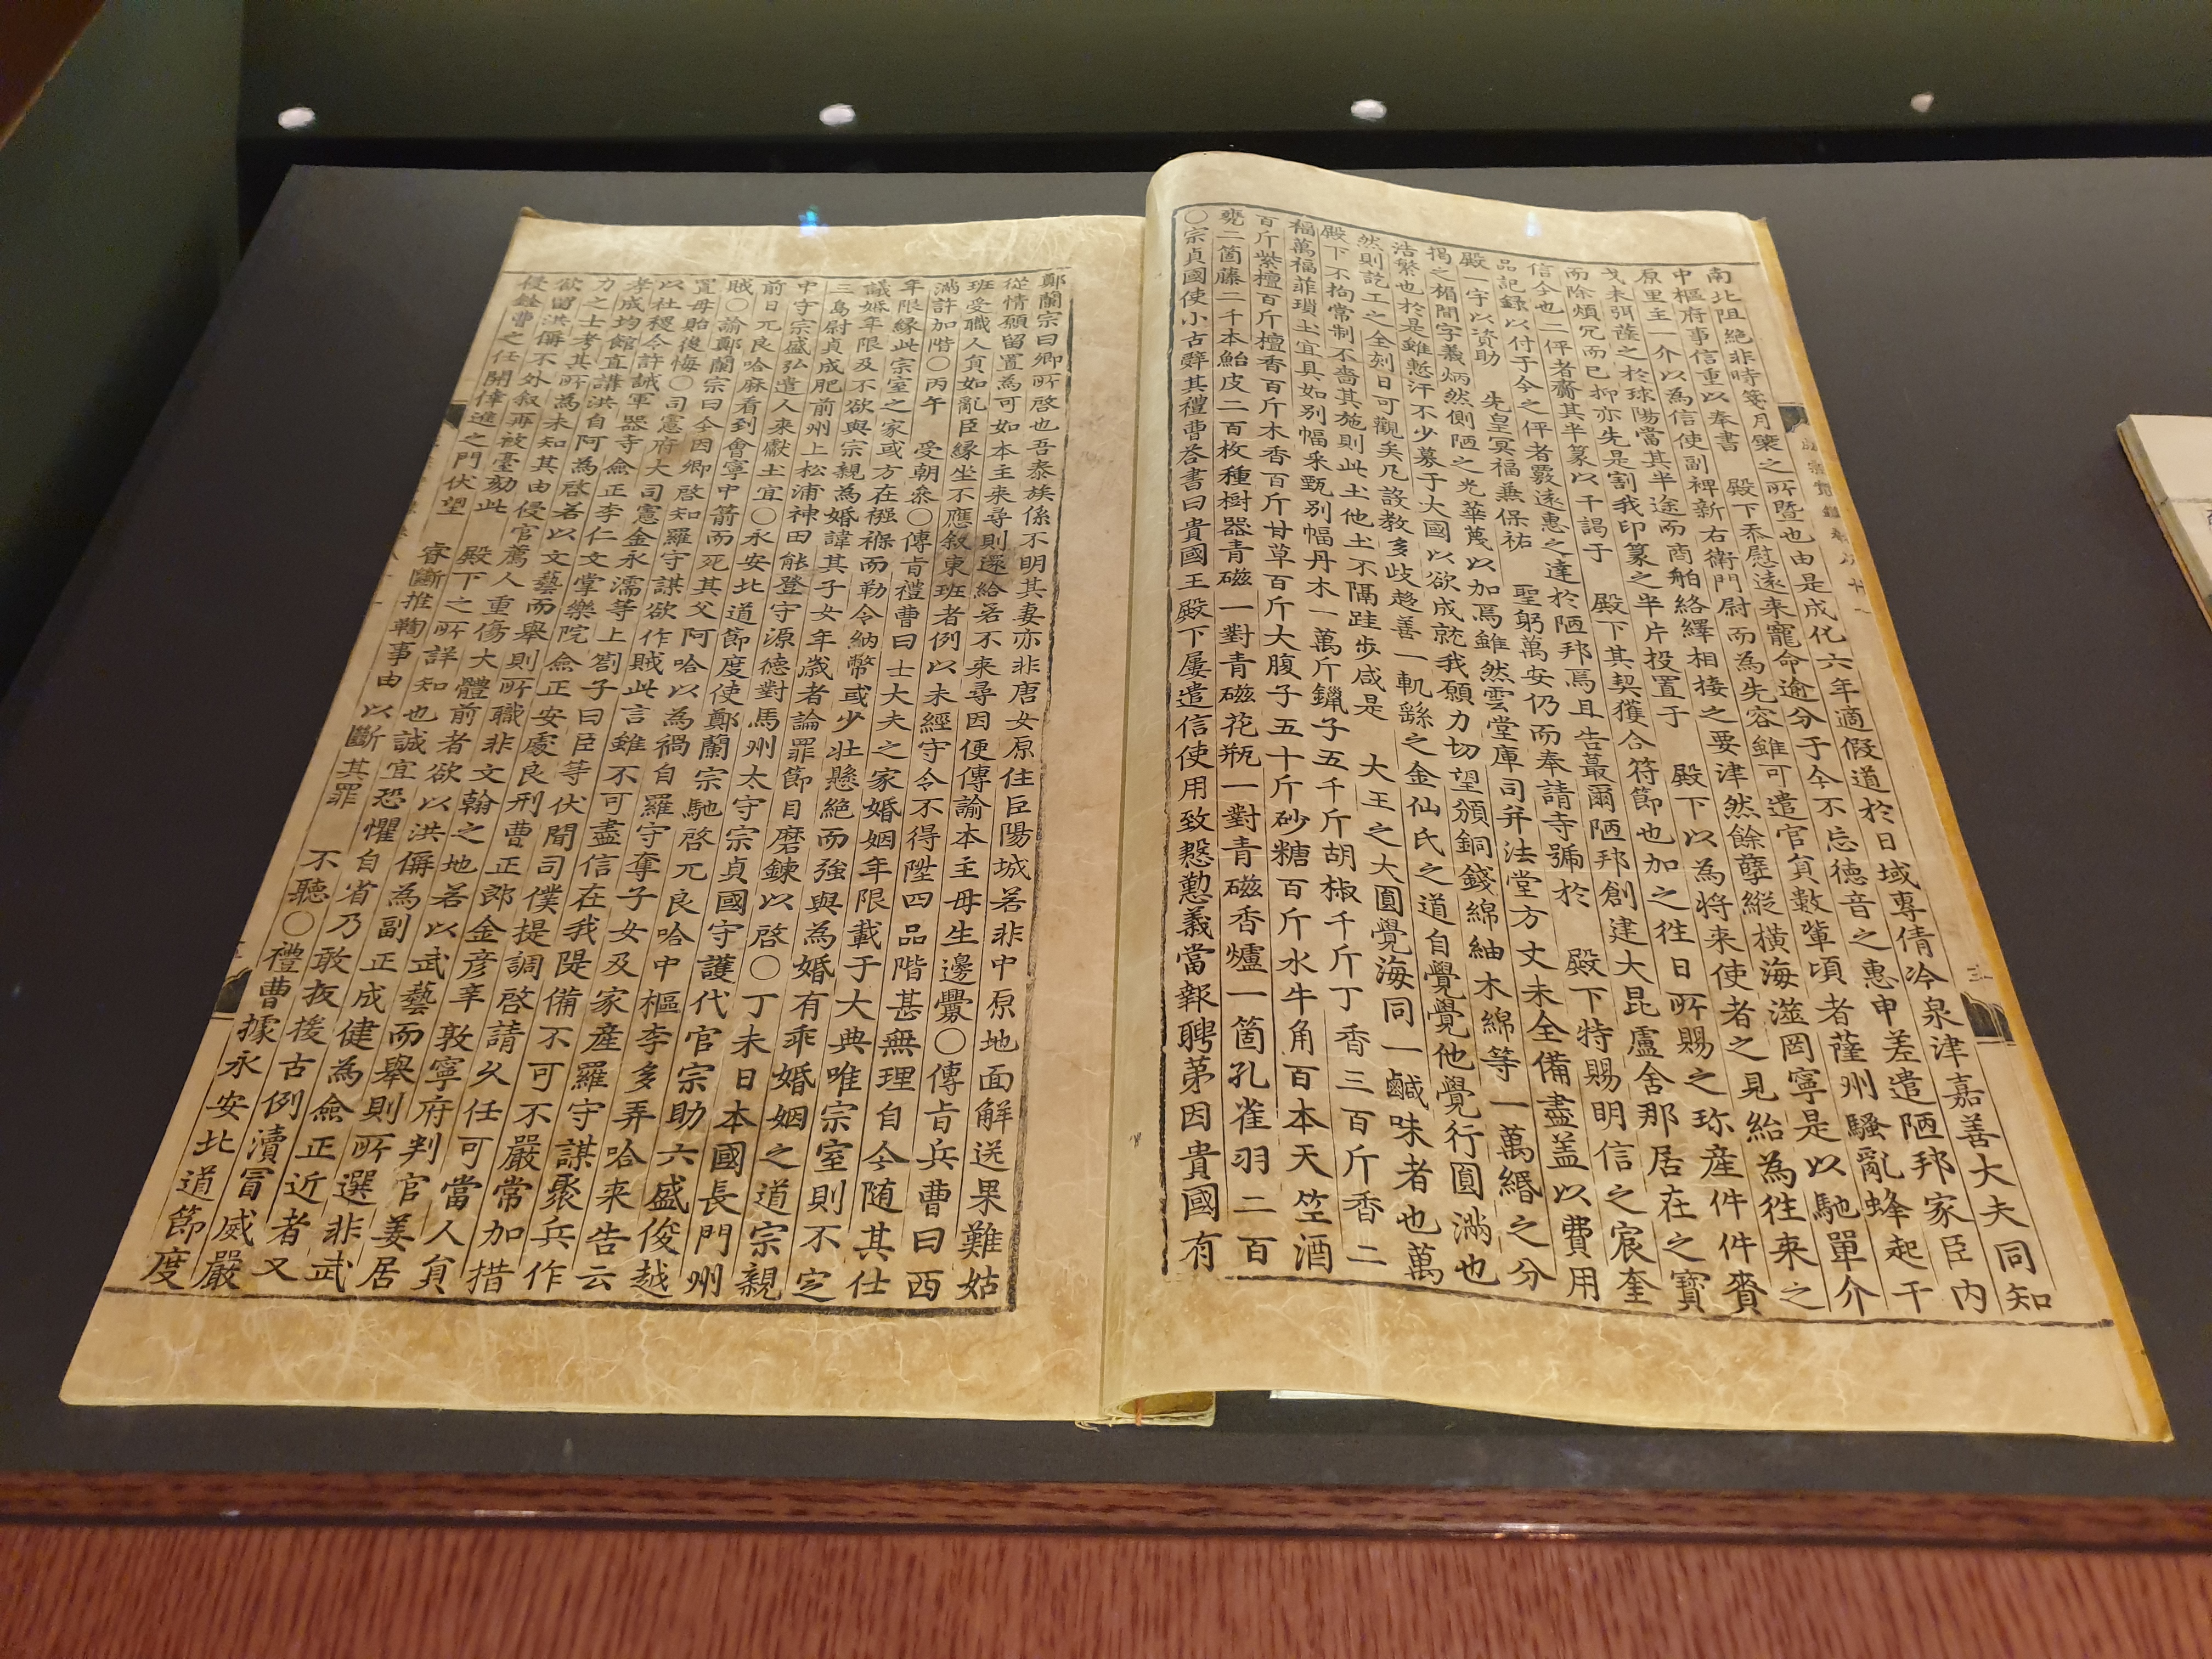 南北阻絶非時笺月槩之所曁也由是成化六年適假道於日域專倩冷泉津嘉善大夫同知
中樞府事信重以奉書　殿下忝慰遠來寵命逾分于今不忘德音之惠申差遣陋邦家臣内
原里主一介以為信使副裨新右衛門尉而為先容雖可遣官負數輩頃者薩州騷亂蜂起干
戈未弭薩之於球陽當其半途而商舶絡繹相接之要津然餘孽縱橫海滋罔寧是以馳單介
而除煩冗而已抑亦先是割我印篆之半片投置于　殿下以為將来使者之見紿為徃来之
信今也二伻者齎其半篆以干謁于　殿下其契獲合符節也加之徃日所賜之珎産件件賚
品記録以付于今之伻者覈遠惠之達於陋邦焉且告蕞爾陋邦創建大昆盧舍那居在之寶
殿一宇以資助　先皇冥福兼保祐　聖躬萬安仍而奉請寺號於　殿下特賜明信之宸奎
揭之楣間字義炳然側陋之光華蔑以加焉雖然雲堂庫司并法堂方丈未全備盡盖以費用
浩繁也於是雖慙汗不少募于大國以欲成就我願力切望頒銅錢綿紬木綿等一萬緡之分
然則訖工之全刻日可觀矣凡設教多歧趍善一軌繇之金仙氏之道自覺覺他覺行圓滿也
殿下不拘常制不嗇其施則此土他土不隔跬步咸是　大王之大圓覺海同一鹹味者也萬
福萬福菲瑣土宜具如别幅采甄别幅丹木一萬斤鑞子五千斤胡椒千斤丁香三百斤香二
百斤紫檀百斤檀香百斤木香百斤甘草百斤大腹子五十斤砂糖百斤水牛角百本天竺酒
甕二箇藤二千本鮐皮二百枚種樹器青磁一對青磁花瓶一對青磁香爐一箇孔雀羽二百
○宗貞國使小古辭其禮曹荅書曰貴國王殿下屢遣信使用致慇懃義當報聘苐因貴國有
鄭蘭宗曰卿所啓也吾泰族係不明其妻亦非唐女原住臣陽城若非中原地面解送果難姑
從情願留置為可如本主来尋則還給若不来尋因便傳諭本主毋生邊釁○傳旨兵曹曰西
班受職人負如亂臣縁坐不應叙東班者例以未經守令不得陞四品階甚無理自今随其仕
滿許加階○丙午　受朝叅○傳旨禮曹曰士大夫之家婚姻年限載于大典唯宗室則不定
年限縁此宗室之家或方在襁褓而勒令納幣或少壯懸絶而強與為婚有乖婚姻之道宗親
議婚年限及不欲與宗親為婚諱其子女年歲者論罪節目磨鍊以啓○丁未日本國長門州
三島尉貞成肥前州上松浦神田能登守源德對馬州太守宗貞國守護代官宗助六盛俊越
中守宗盛弘遣人来獻土宜○永安北道節度使鄭蘭宗馳啓兀良哈中樞李多弄哈来告云
前日兀良哈麻看到會寧中箭而死其父阿哈以為禍自羅守奪子女及家産羅守謀聚兵作
賊○諭鄭蘭宗曰今因卿啓知羅守謀欲作賊此言雖不可盡信在我隄備不可不嚴常加措
置毋貽後悔○司憲府大司憲金永濡等上劄子曰臣等伏聞司僕提調啓請久任可當人負
以社稷令許誡軍器寺僉正李仁文掌樂院僉正安處良刑曹正郎金彦辛敦寧府判官姜居
孝成均館直講洪自阿為啓若以文藝而舉則所職非文翰之地若以武藝而舉則所選非武
力之士考其所為未知其由侵官薦人重傷大體前者欲以洪倆為副正成健為僉正近者又
欲留洪倆不外叙再被臺劾此　殿下之所詳知也誠宜恐懼自省乃敢扳援古例瀆冒威嚴
侵銓曹之任開倖進之門伏望　睿斷推鞫事由以斷其罪　不聽○禮曹據永安北道節度